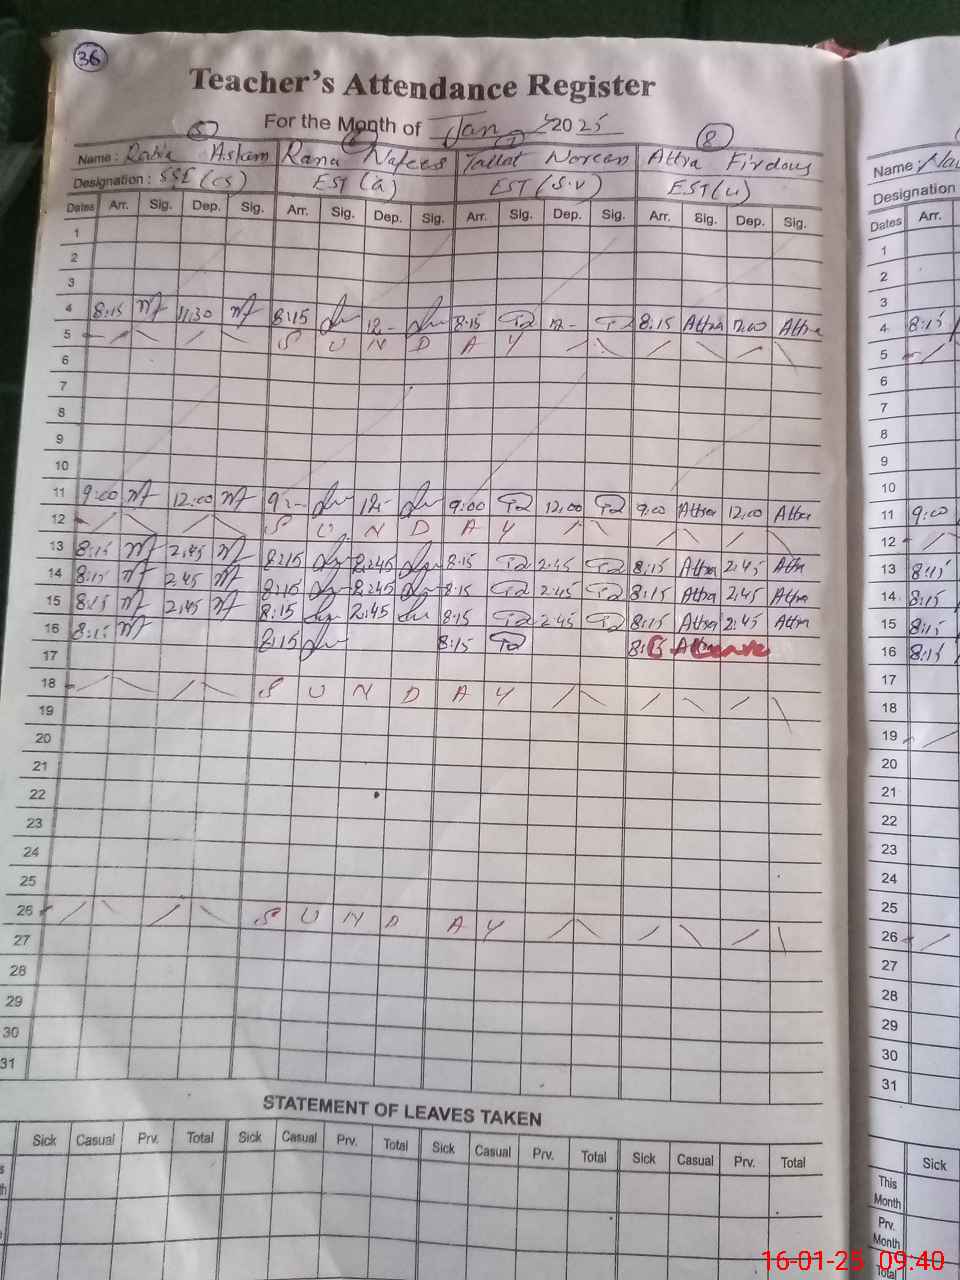 36
Teacher's Attendance Register
For the Month of Jan 2025
5 7 8
Name : Rabia Aslam Rana Nafees Tallat Noreen Attra Firdous
Designation : SSE (CS) EST (a) EST (S.V) EST (U)
Dates Arr. Sig. Dep. Sig. Arr. Sig. Dep. Sig. Arr. Sig. Dep. Sig. Arr. Sig. Dep. Sig.
1
2
3
4 8:15 11:30 8:15 12- 8:15 12- 8:15 Attra 12:00 Attra
5 S U N D A Y
6
7
8
9
10
11 9:00 12:00 9:- 12- 9:00 12:00 9:00 Attra 12:00 Attra
12 S U N D A Y
13 8:15 2:45 8:15 2:45 8:15 2:45 8:15 Attra 2:45 Attra
14 8:15 2:45 8:15 2:45 8:15 2:45 8:15 Attra 2:45 Attra
15 8:15 2:45 8:15 2:45 8:15 2:45 8:15 Attra 2:45 Attra
16 8:15 8:15 8:15 8:15 Leave
17
18 S U N D A Y
19
20
21
22
23
24
25
26 S U N D A Y
27
28
29
30
31
STATEMENT OF LEAVES TAKEN
Sick Casual Prv. Total Sick Casual Prv. Total Sick Casual Prv. Total Sick Casual Prv. Total
Name :
Designation
Dates Arr.
1
2
3
4 8:15
5
6
7
8
9
10
11 9:00
12
13 8:15
14 8:15
15 8:15
16 8:15
17
18
19
20
21
22
23
24
25
26
27
28
29
30
31
Sick
This
Month
Prv.
Month
Total
16-01-25 09:40